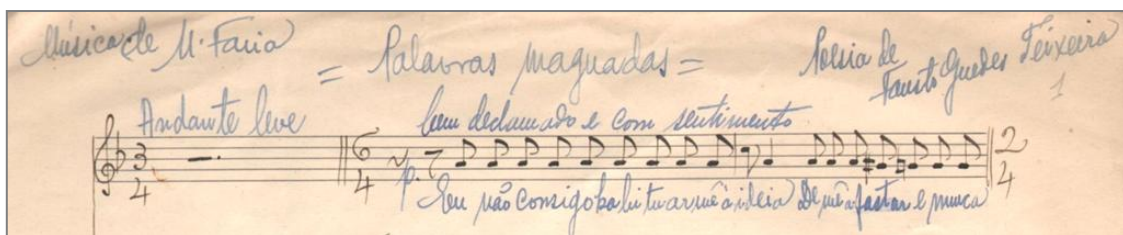 Música de M. Faria
= Palavras maguadas =
Poesia de
Fausto Guedes Teixeira
1
Andante leve
bem declamado e com sentimento
3
4
6
4
2
4
p. Eu não consigo habituar-me à ideia De me afastar e nunca